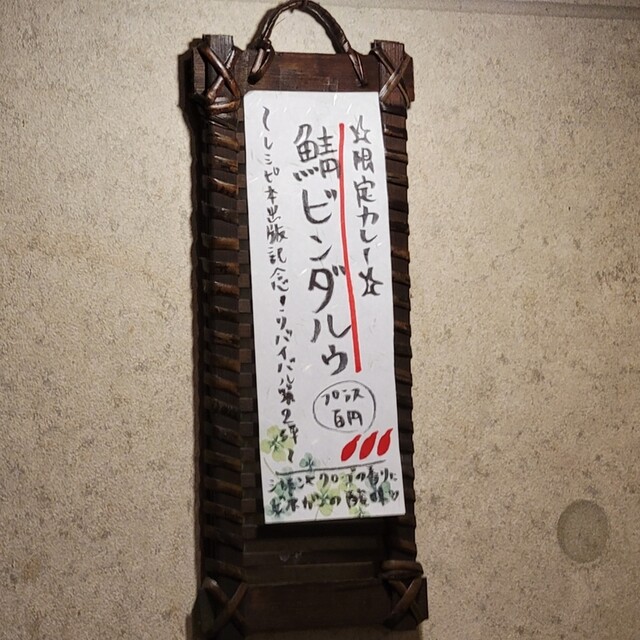 ☆限定カレー☆
鯖ビンダルウ
プラス
百円
〜レシピ本出版記念！リバイバル第2弾！
シナモンとクローブの香りに